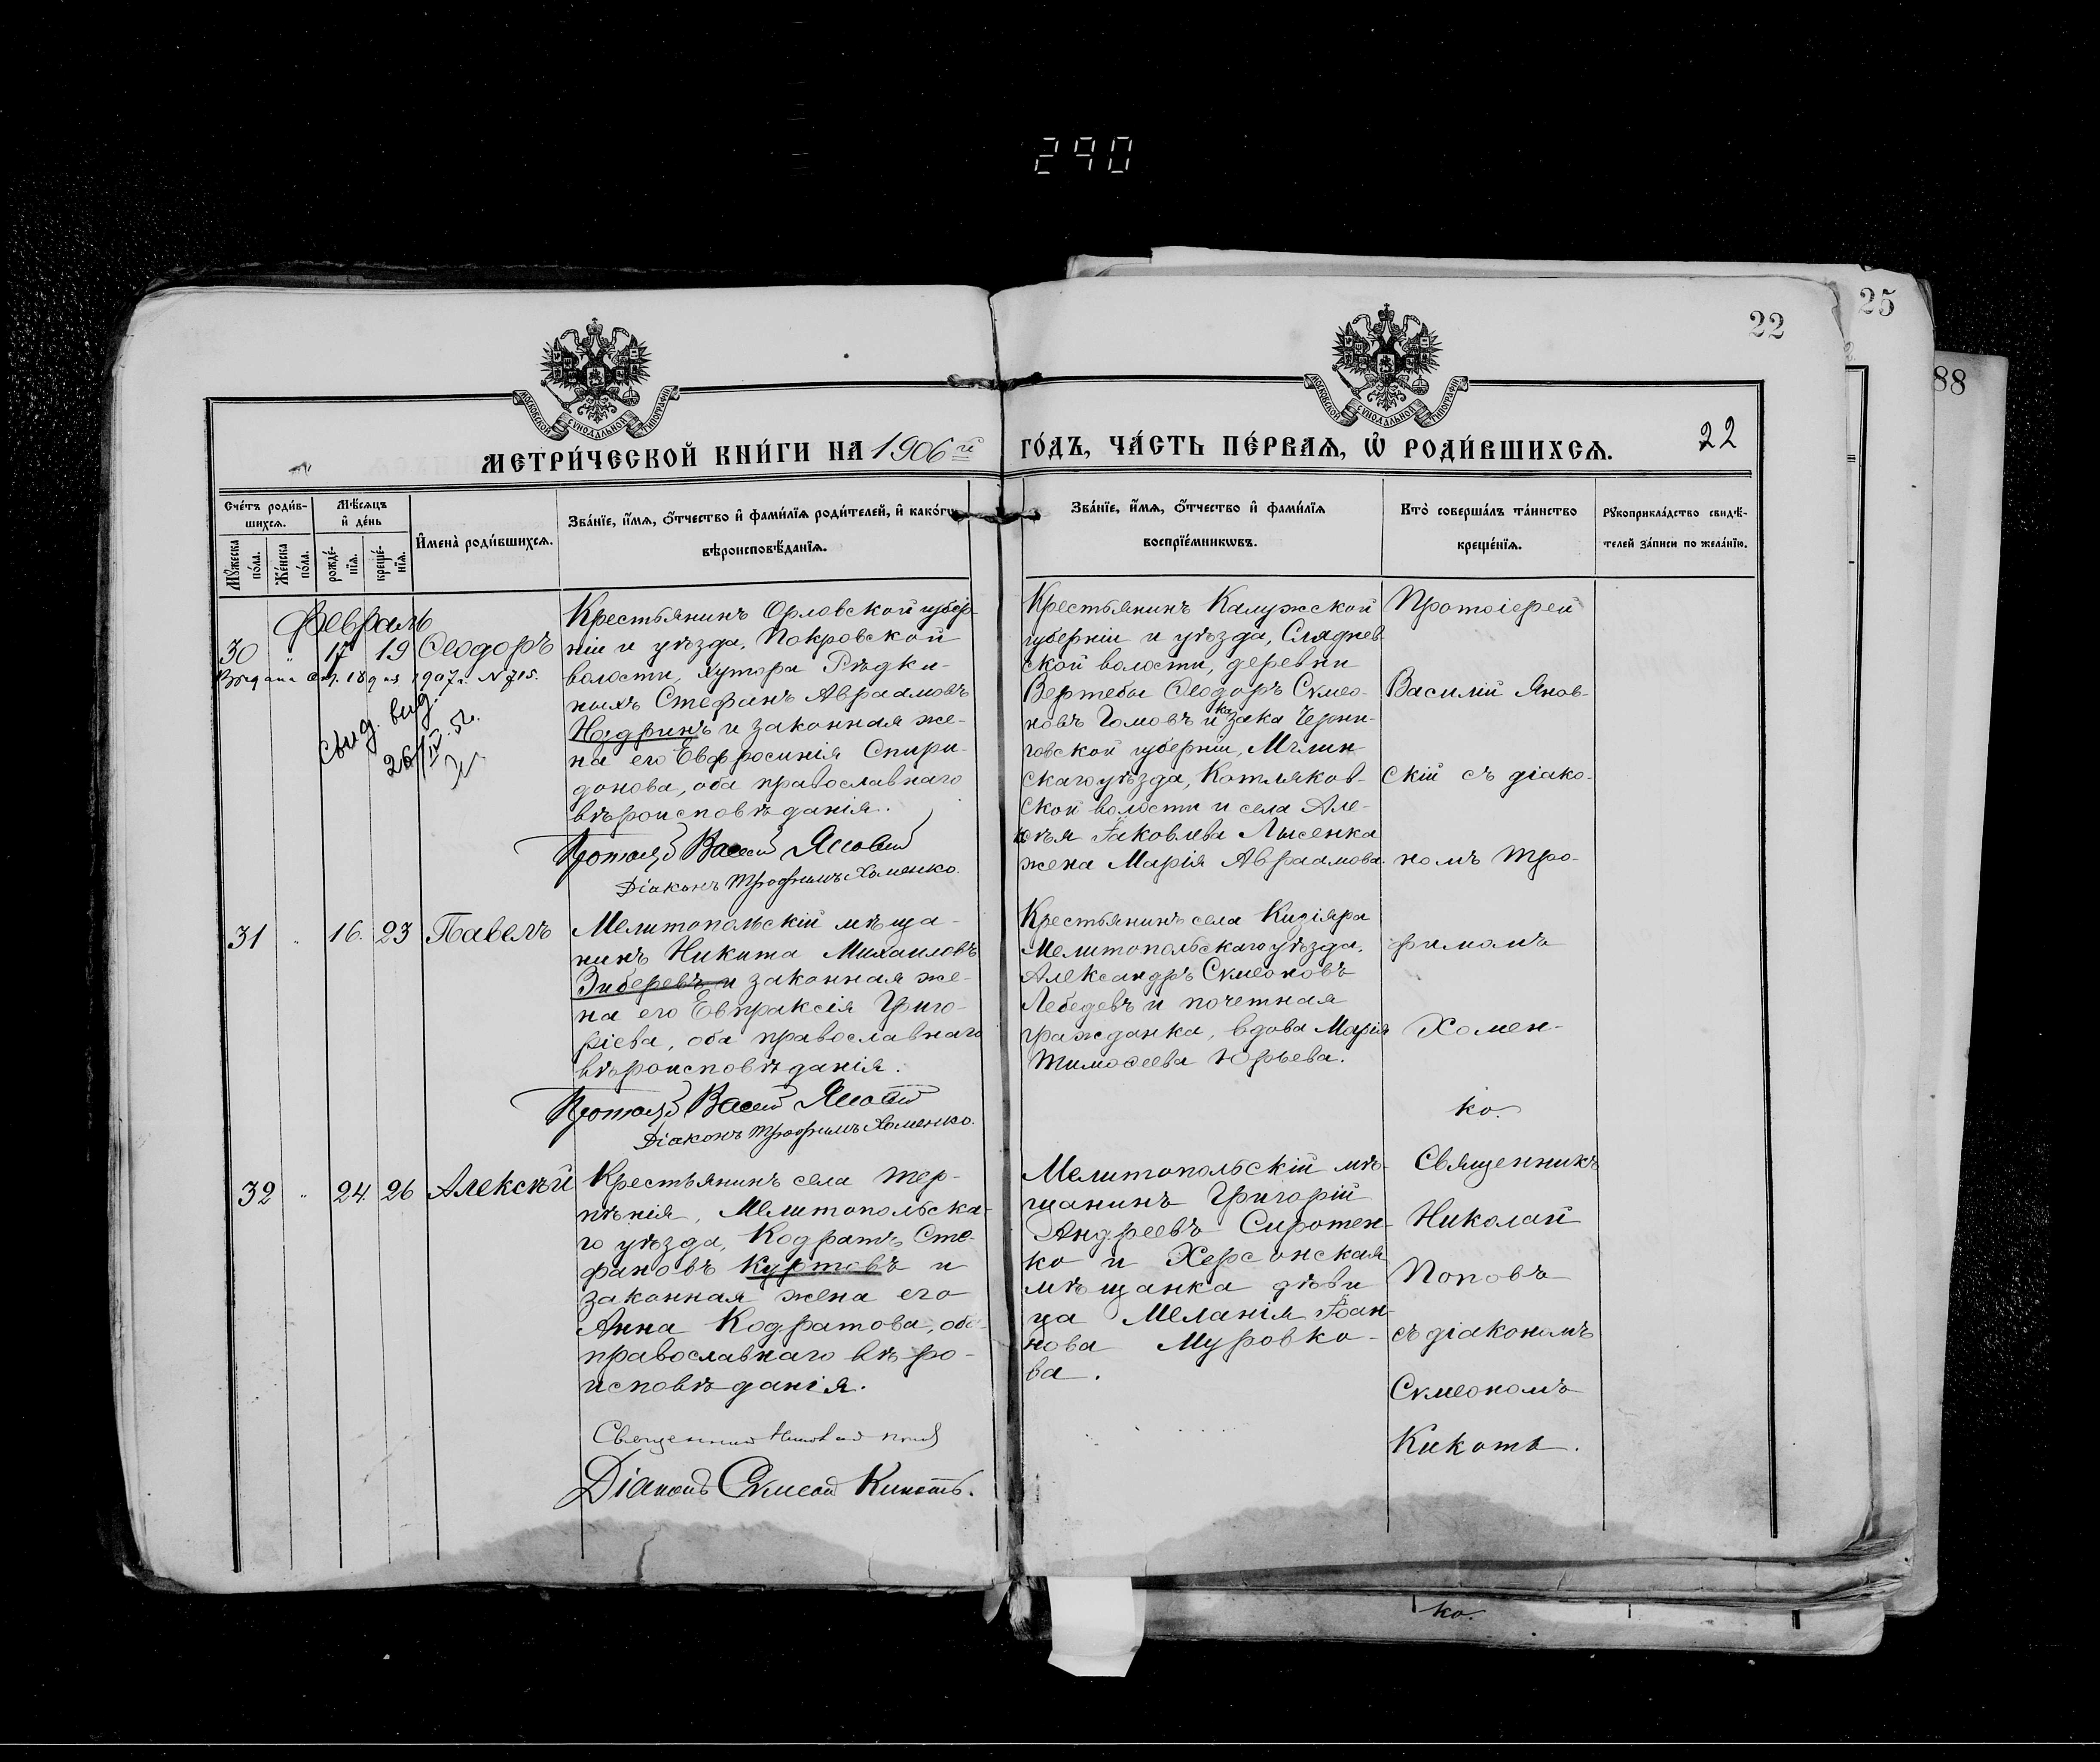 290
25
22
88
МОСКОВСКОЙ СѴНОДАЛЬНОЙ ТИПОГРАФІИ
МОСКОВСКОЙ СѴНОДАЛЬНОЙ ТИПОГРАФІИ
МЕТРИ́ЧЕСКОЙ КНИ́ГИ НА 1906 й ГО́ДЪ, ЧА́СТЬ ПЕ́РВАѦ, Ѡ҆ РОДИ́ВШИХСѦ.
22
Сче́тъ роди́в-
шихсѧ.
Мѣ́сѧцъ
и҆ де́нь
Мꙋ́жеска
по́ла.
Же́нска
по́ла.
рожде́-
нїѧ.
креще́-
нїѧ.
И҆мена̀ роди́вшихсѧ.
Зва́нїе, и҆́мѧ, ѻ҆́тчество и҆ фами́лїѧ роди́телей, и҆ како́гѡ
вѣроисповѣ́данїѧ.
Зва́нїе, и҆́мѧ, ѻ҆́тчество и҆ фами́лїѧ
воспрїе́мникѡвъ.
Кто̀ соверша́лъ та́инство
креще́нїѧ.
Рꙋкоприкла́дство свидѣ́-
телей за́писи по жела́нїю.
Февраль
30 " 17 19 Ѳеодоръ
1907 г. № 715.
свид. выд.
26/IV. 52.
Крестьянинъ Орловской губер-
ніи и уѣзда, Покровской
волости, хутора Рѣдки-
ныхъ Стефанъ Авраамовъ
и законная же-
на его Евфросинія Спири-
донова, оба православнаго
вѣроисповѣданія.
Протоіерей Василій Яновскій
Діаконъ Трофимъ Хоменко.
Крестьянинъ Калужской
губерніи и уѣзда, Сляднев
ской волости, деревни
Вертебы Ѳеодоръ Сѵмео-
новъ Гомовъ и казака Черни-
говской губерніи, Мглин
скаго уѣзда, Котляков-
ской волости и села Але-
ксѣя Іаковлева Лысенка
жена Марія Авраамова.
Протоіерей
Василій Янов-
скій съ діако-
номъ Тро-
фимомъ
Хомен-
ко.
31 " 16. 23 Павелъ
Мелитопольскій мѣща-
нинъ Никита Михаиловъ
Зиберевъ и законная же-
на его Евпраксія Григо-
ріева, оба православнаго
вѣроисповѣданія.
Протоіерей Василій Яновскій
Діаконъ Трофимъ Хоменко.
Крестьянинъ села Кизіяра
Мелитопольскаго уѣзда.
Александръ Сѵмеоновъ
Лебедевъ и почетная
гражданка, вдова Марія
Тимоѳеева Юрьева.
32 " 24 26 Алексѣй
Крестьянинъ села Тер-
пѣнія, Мелитопольска-
го уѣзда, Кодратъ Сте-
фановъ Куртовъ и
законная жена его
Анна Кодратова, оба
православнаго вѣро-
исповѣданія.
Священникъ Николай Поповъ
Діаконъ Сѵмеонъ Кикоть.
Мелитопольскій мѣ-
щанинъ Григорій
Андреевъ Сиротен-
ко и Херсонская
мѣщанка дѣви
ца Меланія Іоан-
нова Муровко-
ва.
Священникъ
Николай
Поповъ
съ діакономъ
Сѵмеономъ
Кикоть.
ко.